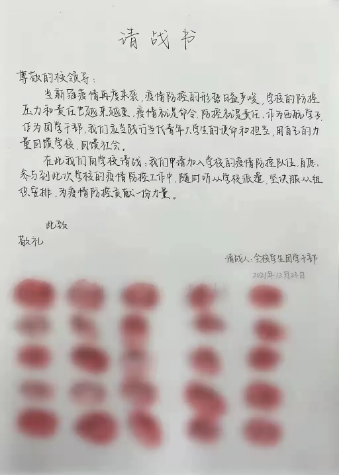 请战书
尊敬的校领导:
当新冠疫情再度来袭,疫情防控的形势日益严峻,学校的防控
压力和责任也越来越重。疫情就是命令,防控就是责任,作为西航学子,
作为团学干部,我们应当践行当代青年大学生的使命和担当,用自己的力
量回馈学校,回馈社会。
在此我们向学校请战:我们申请加入学校的疫情防控队伍,自愿
参与到此次学校的疫情防控工作中,随时听从学校派遣,坚决服从组
织安排,为疫情防控贡献一份力量。
此致
敬礼
请战人:全校学生团学干部
2021年12月23日